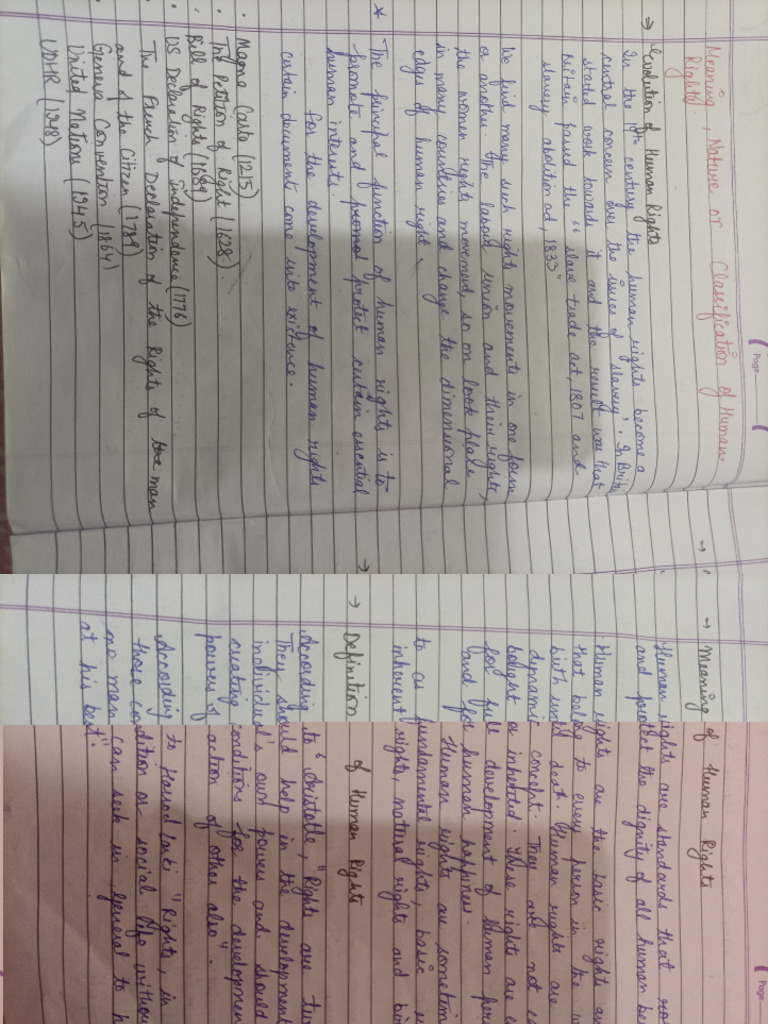 Page
Meaning, Nature or Classification of Human
Rights.
→ Evolution of Human Rights
In the 19th century the human rights become a
central concern over the issues of slavery'. In Brita
stated work towards it and the result was that
britain passed the "slave trade act, 1807 and
slavery abolition act, 1833"
We find many such rights movements in one form
or another. The labour union and their rights,
the women rights movement, so on look place
in many countries and change the dimensional
edge of human right
* The principal function of human rights is to
promote and protect certain essential
human interests.
for the development of human rights
certain documents come into existence.
• Magna Carta (1215)
• The Petition of Right (1628).
• Bill of Rights (1689)
• US Declaration of Independence (1776)
• The French Declaration of the Rights of the man
and of the Citizen (1789)
• Geneva Convention (1864)
United Nations (1945)
UDHR (1948)
Page
→ Meaning of Human Rights
Human rights are standards that
and protect the dignity of all human be
Human rights are the basic rights an
that belong to every person in the w
birth until death. Human rights are
dynamic concept. They are not
bought or inherited. These rights are
for full development of human per
and for human happiness.
Human rights are sometim
to as fundamental rights, basic
inherent rights, natural rights and bir
→ Definition of Human Rights
According to "Aristotle, "Rights are
They should help in the development
individual's own powers and should
creating conditions for the developmen
powers of action of other also".
According to Harrod Laski "Rights, in
those condition or social life withou
no man can seek in general to h
at his best".